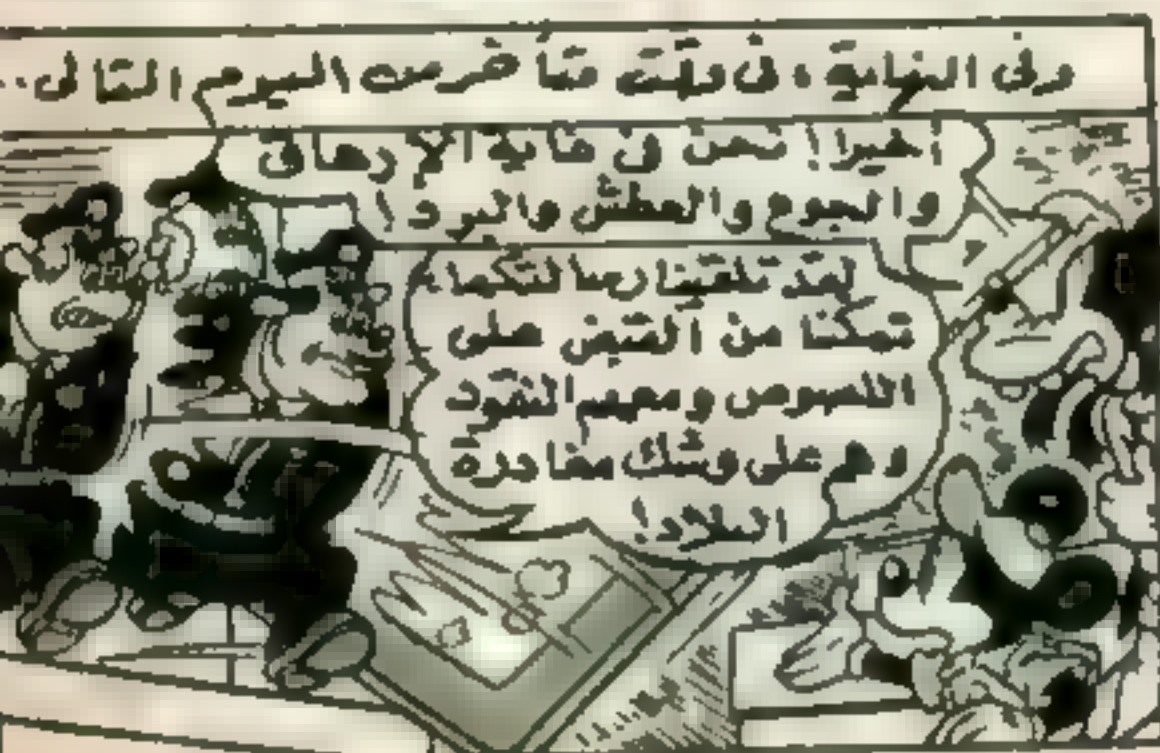 وفى النهاية، فى وقت متأخر من اليوم التالى..
أخيرا! نحن فى غاية الإرهاق
والجوع والعطش والبرد!
لقد تلقينا رسالتكما،
تمكنا من القبض على
اللصوص ومعهم النقود
وهم على وشك مغادرة
البلاد!